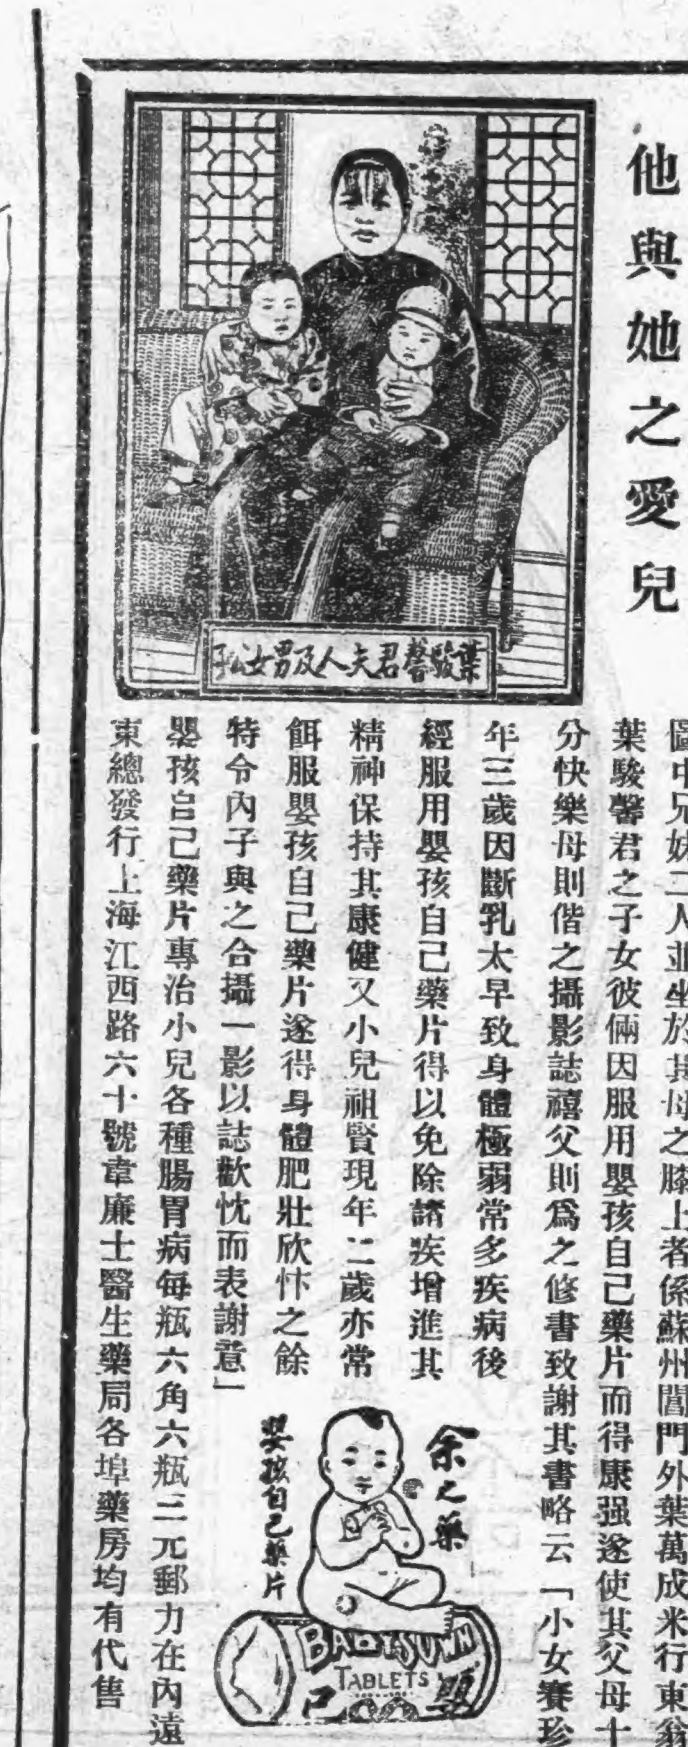 他與她之愛兒
葉駿聲君夫人及男女公子
圖中兄妹二人並坐於其母之膝上者係蘇州閶門外葉萬成米行東翁
葉駿馨君之子女彼倆因服用嬰孩自己藥片而得康强遂使其父母十
分快樂母則偕之攝影誌禧父則爲之修書致謝其書略云「小女賽珍
年三歲因斷乳太早致身體極弱常多疾病後
經服用嬰孩自己藥片得以免除諸疾增進其
精神保持其康健又小兒祖賢現年二歲亦常
餌服嬰孩自己藥片遂得身體肥壯欣忭之餘
特令內子與之合攝一影以誌歡忱而表謝意」
嬰孩自己藥片專治小兒各種腸胃病每瓶六角六瓶三元郵力在內遠
東總發行上海江西路六十號韋廉士醫生藥局各埠藥房均有代售
余之藥
嬰孩自己藥片
BABY'S OWN
TABLETS